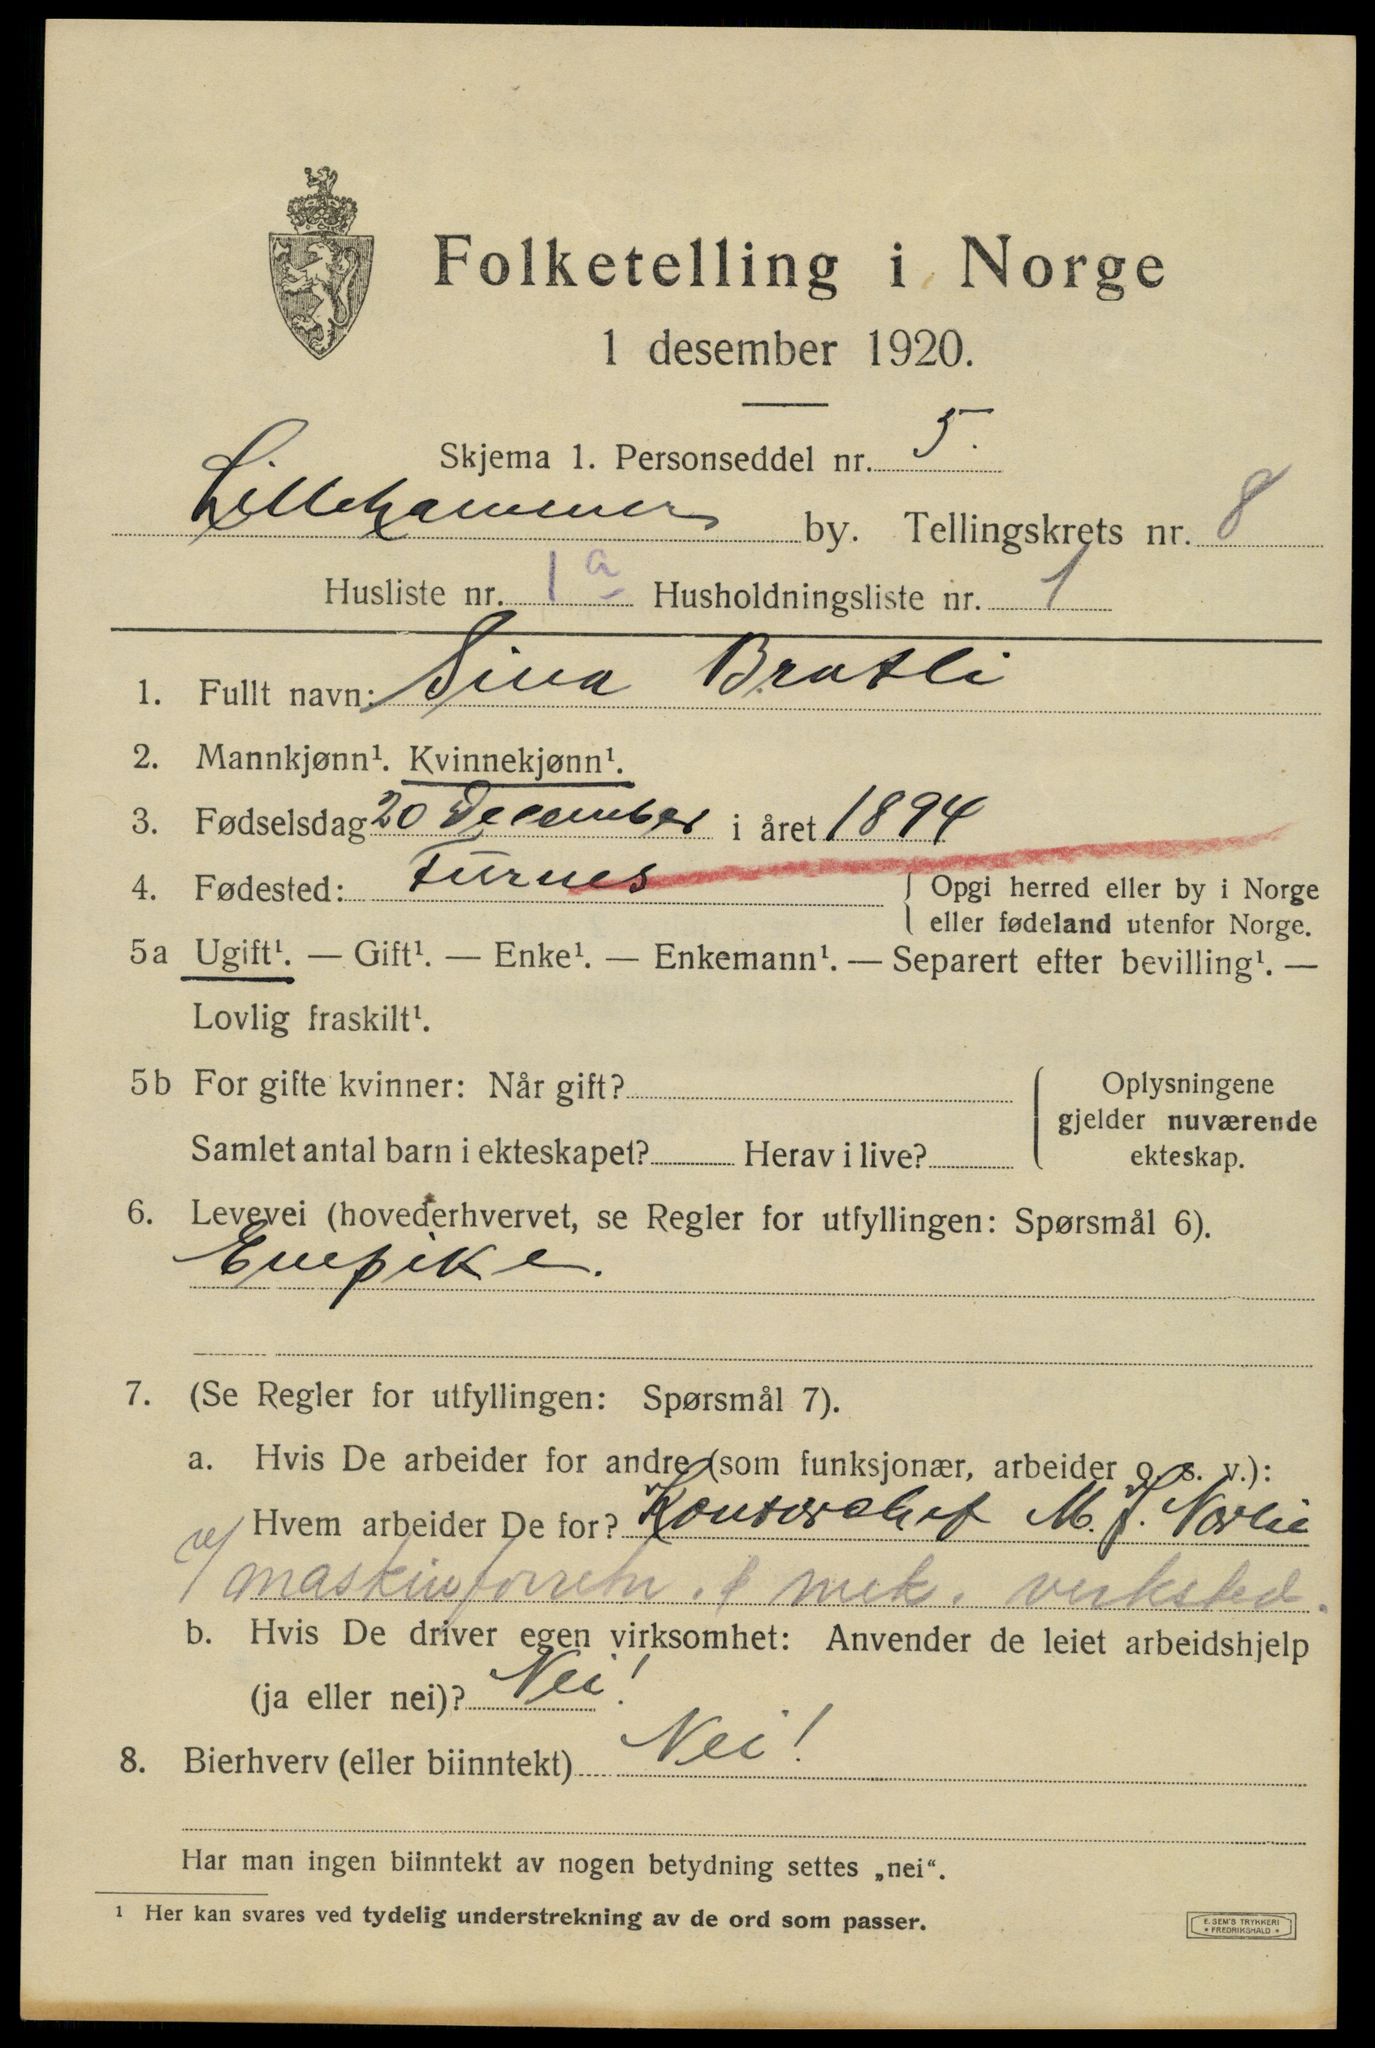 Folketelling i Norge
1 desember 1920.
Skjema 1. Personseddel nr. 5.
Lillehammer by. Tellingskrets nr. 8
Husliste nr. 1a Husholdningsliste nr. 1
1. Fullt navn: Sina Bratli
2. Mannkjønn¹. Kvinnekjønn¹.
3. Fødselsdag 20 December i året 1894
4. Fødested: Furnes
{ Opgi herred eller by i Norge
eller fødeland utenfor Norge.
5a Ugift¹. — Gift¹. — Enke¹. — Enkemann¹. — Separert efter bevilling¹. —
Lovlig fraskilt¹.
5b For gifte kvinner: Når gift?
Samlet antal barn i ekteskapet? Herav i live?
{ Oplysningene
gjelder nuværende
ekteskap.
6. Levevei (hovederhvervet, se Regler for utfyllingen: Spørsmål 6).
Enepike.
7. (Se Regler for utfyllingen: Spørsmål 7).
a. Hvis De arbeider for andre (som funksjonær, arbeider o. s. v.):
Hvem arbeider De for? Kontorchef M. J. Norlie
v/ maskinforretn. & mek. verksted.
b. Hvis De driver egen virksomhet: Anvender de leiet arbeidshjelp
(ja eller nei)? Nei!
8. Bierhverv (eller biinntekt) Nei!
Har man ingen biinntekt av nogen betydning settes „nei“.
¹ Her kan svares ved tydelig understrekning av de ord som passer.
E. SEM'S TRYKKERI
* FREDRIKSHALD *